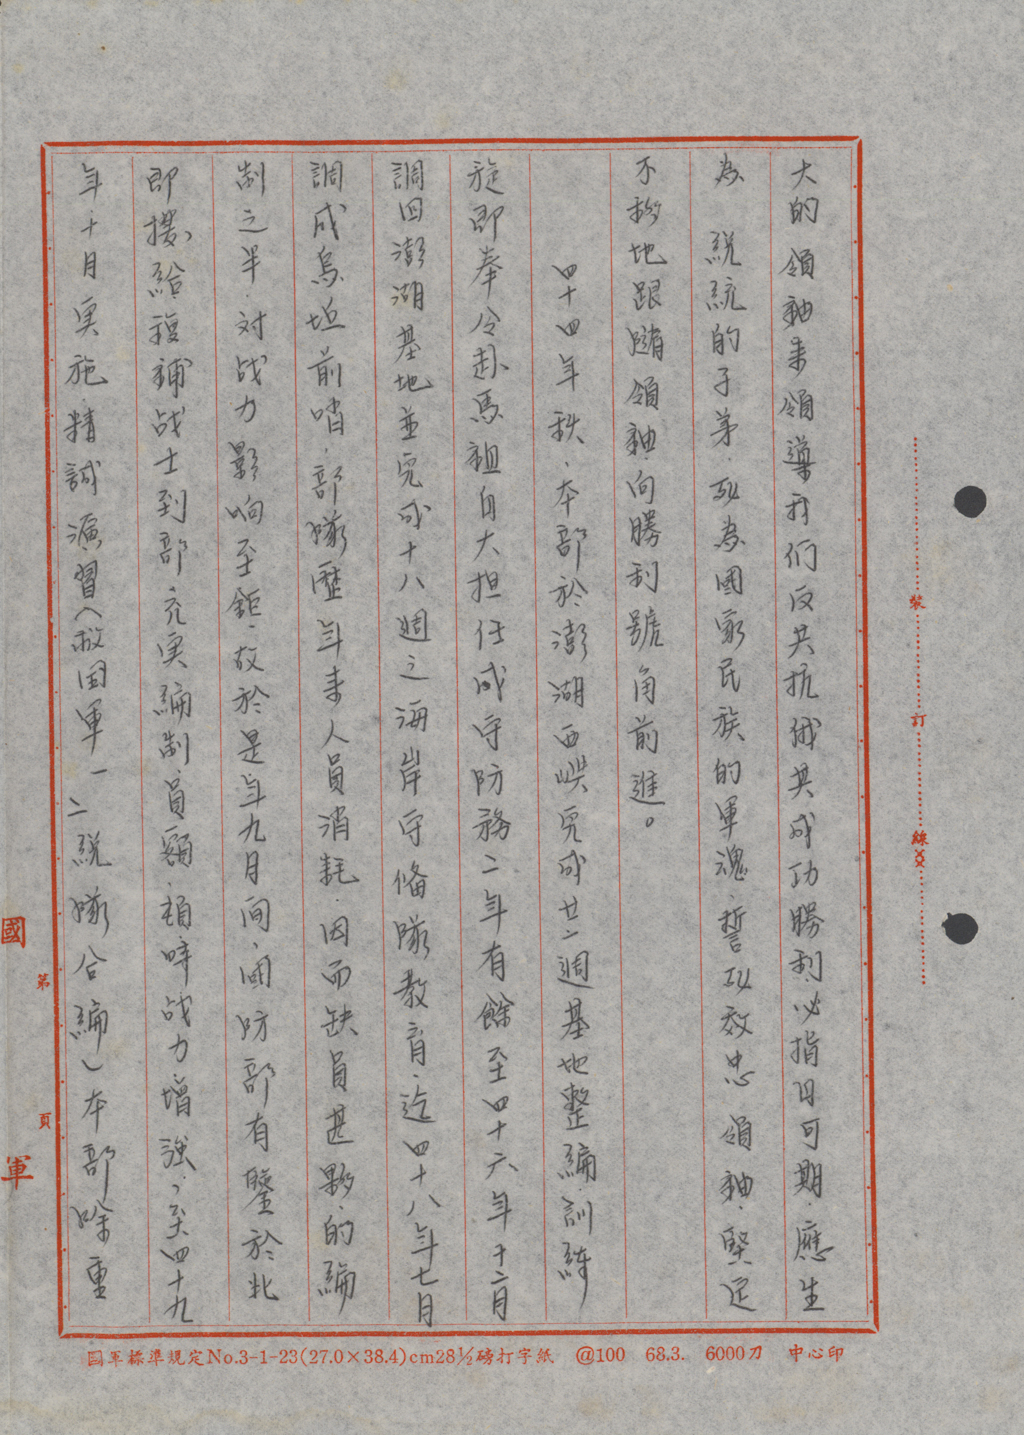 大的領袖来領導我们反共抗俄其成功勝利必指日可期，應生
為　統統的子弟，死為國家民族的軍魂，誓死效忠　領袖，堅定
不移地跟隨領袖向勝利號角前進。
四十四年秋，本部於澎湖西嶼完成廿二週基地整編訓練
旋即奉令赴馬祖白犬担任戍守防務二年有餘至四十六年十二月
調回澎湖基地並完成十八週之海岸守備隊教育，迄四十八年七月
調戍烏坵前哨，部隊歷年来人員消耗，因而缺員甚夥，約編
制之半，对战力影响至鉅，故於是年九月间，国防部有鑒於此
即撥給補战士到部，充实編制員額，頓時战力增強，至四十九
年十月実施精誠演習（救国軍一二縱隊合編）本部除重
裝訂線
國軍
第頁
國軍標準規定No.3-1-23(27.0×38.4)cm28½磅打字紙　@100　68.3.　6000刀　中心印